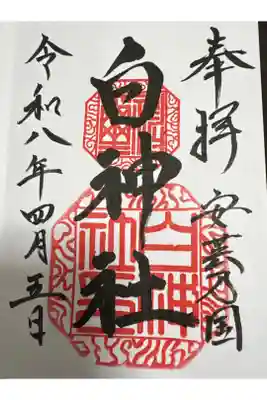 奉拝
安芸乃国
白神社
令和八年四月五日